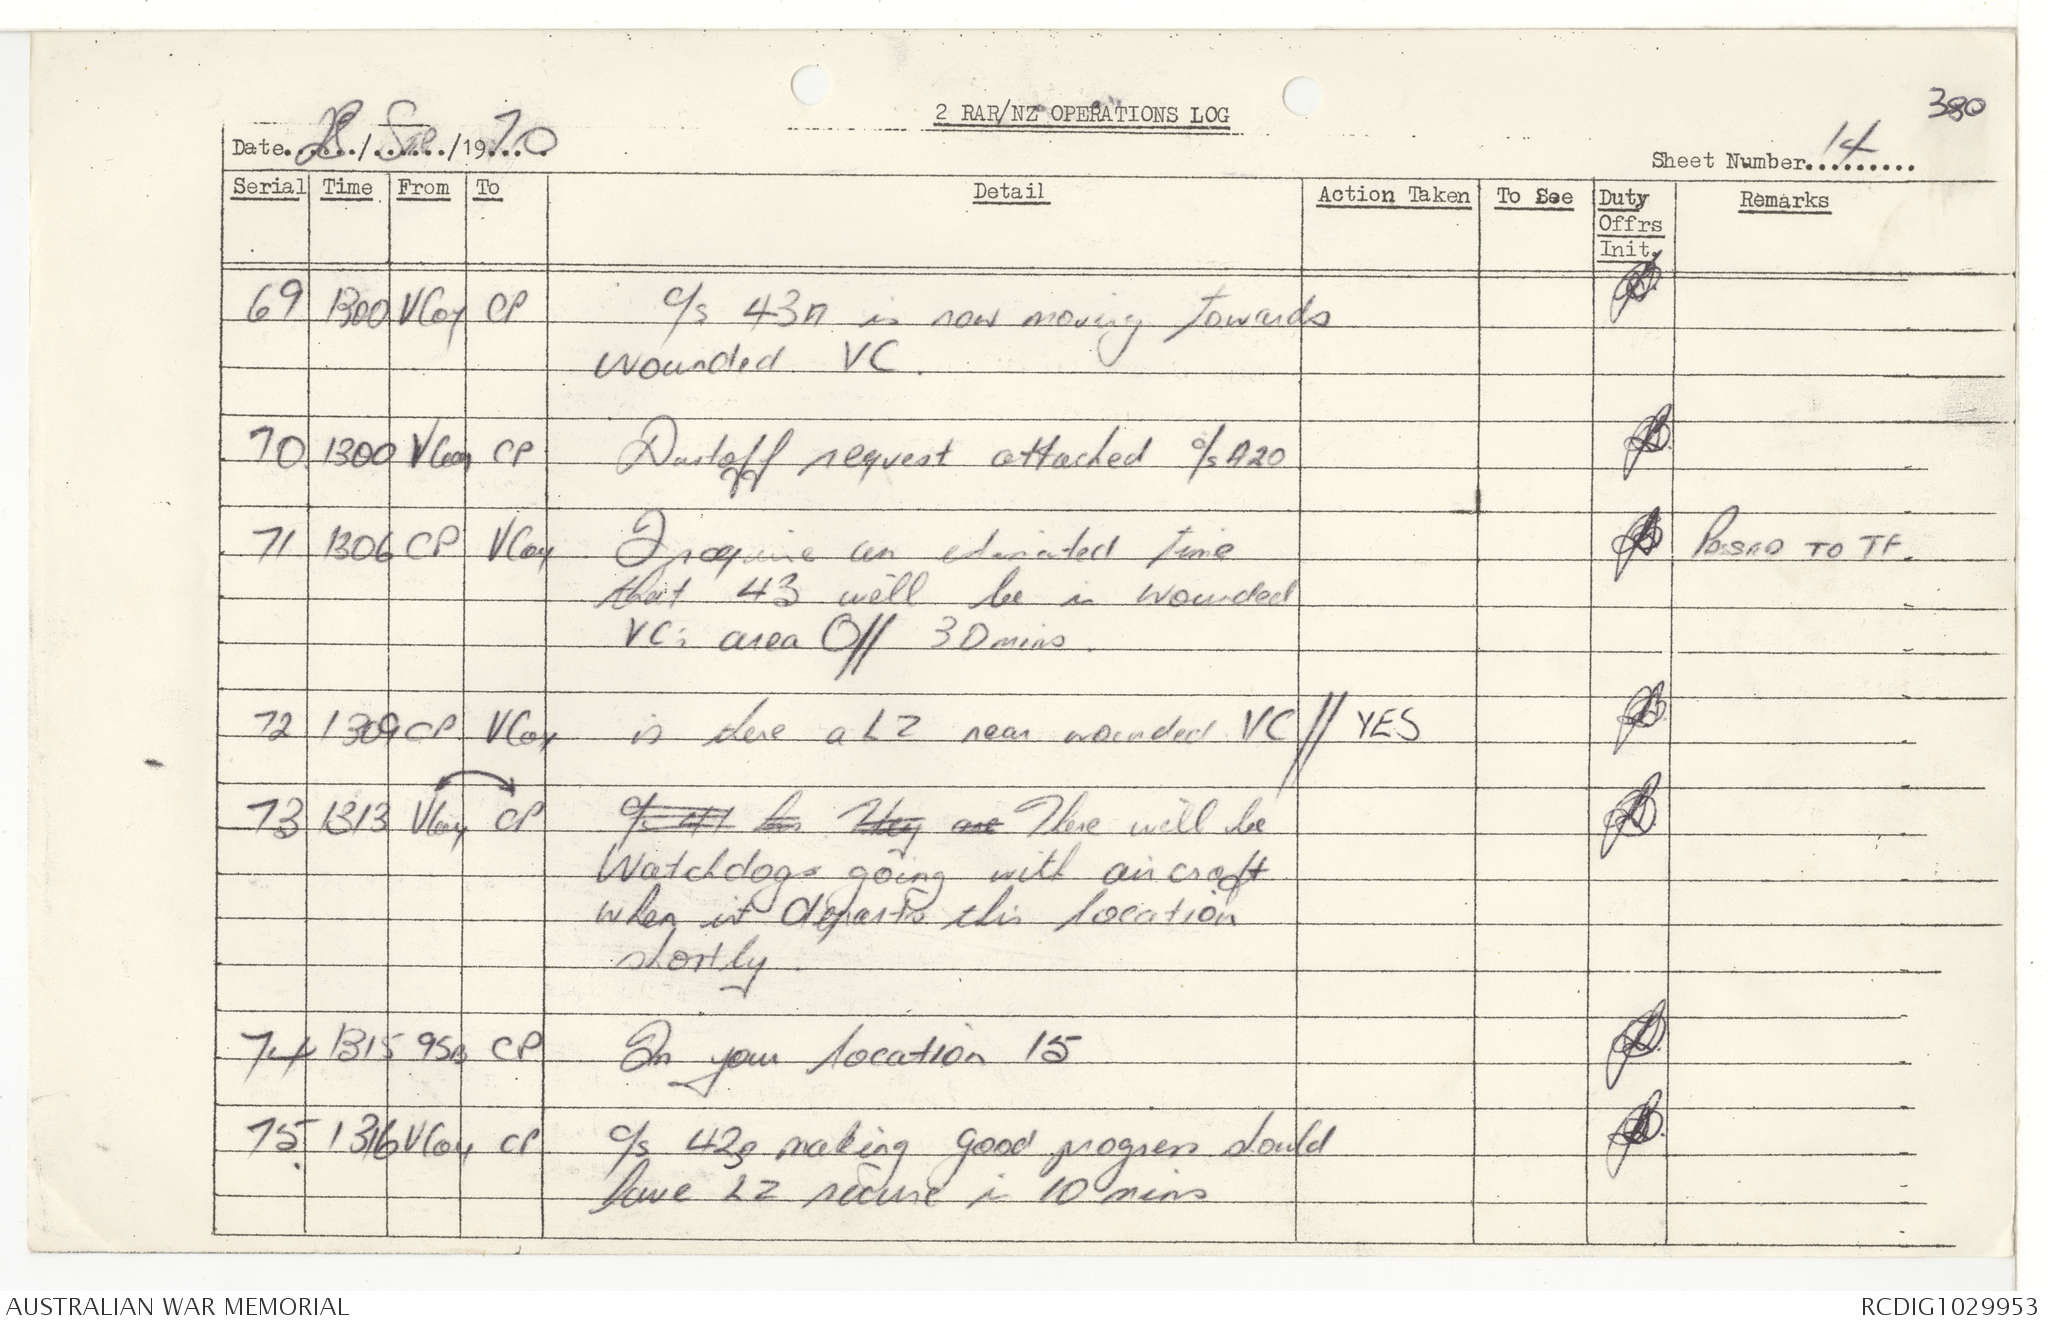 380
2 RAR/NZ OPERATIONS LOG
Date 28/Sep/1970
Sheet Number 14
Serial Time From To Detail Action Taken To See Duty Offrs Init. Remarks
69 1300 VCoy CP c/s 43A is now moving towards
wounded VC.
70 1300 VCoy CP Dustoff request attached c/s A20
71 1306 CP VCoy I require an estimated time Passed TO TF.
that 43 will be in wounded
VC's area O// 30 mins.
72 1309 CP VCoy is there a LZ near wounded VC // YES
73 1313 VCoy CP c/s 41 has They are There will be
Watchdogs going with aircraft
when it departs this location
shortly.
74 1315 95B CP On your location 15
75. 1316 VCoy CP c/s 42A making good progress should
have LZ secure in 10 mins
AUSTRALIAN WAR MEMORIAL
RCDIG1029953